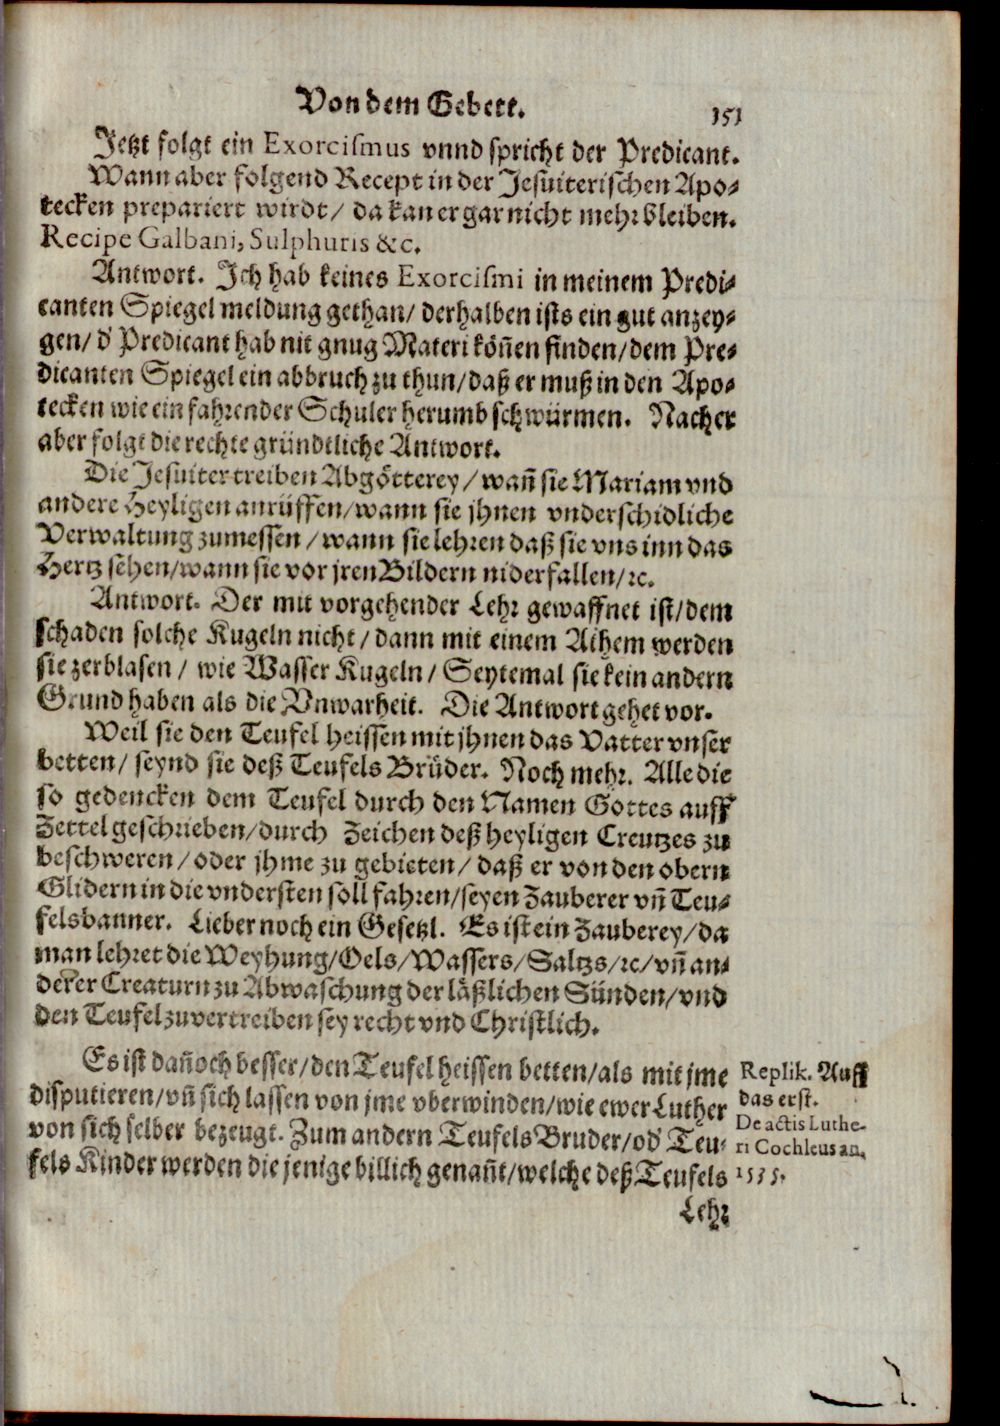 Von dem Gebett.
151
Jetzt folgt ein Exorcismus vnnd spricht der Predicant.
Wann aber folgend Recept in der Jesuiterischen Apo-
tecken prepariert wirdt/ da kan er gar nicht mehr bleiben.
Recipe Galbani, Sulphuris &c.
Antwort. Jch hab keines Exorcismi in meinem Predi-
canten Spiegel meldung gethan/ derhalben ists ein gut anzey-
gen/ d' Predicant hab nit gnug Materi köñen finden/ dem Pre-
dicanten Spiegel ein abbruch zu thun/ daß er muß in den Apo-
tecken wie ein fahrender Schuler herumb schwürmen. Nacher
aber folgt die rechte gründtliche Antwort.
Die Jesuiter treiben Abgötterey/ wañ sie Mariam vnd
andere Heyligen anrüffen/ wann sie jhnen vnderschidliche
Verwaltung zumessen/ wann sie lehren daß sie vns inn das
Hertz sehen/ wann sie vor jren Bildern niderfallen/ ꝛc.
Antwort. Der mit vorgehender Lehr gewaffnet ist/ dem
schaden solche Kugeln nicht/ dann mit einem Athem werden
sie zerblasen/ wie Wasser Kugeln/ Seytemal sie kein andern
Grund haben als die Vnwarheit. Die Antwort gehet vor.
Weil sie den Teufel heissen mit jhnen das Vatter vnser
betten/ seynd sie deß Teufels Brüder. Noch mehr. Alle die
so gedencken dem Teufel durch den Namen Gottes auff
Zettel geschrieben/ durch Zeichen deß heyligen Creutzes zu
beschweren/ oder jhme zu gebieten/ daß er von den obern
Glidern in die vndersten soll fahren/ seyen Zauberer vñ Teu-
felsbanner. Lieber noch ein Gesetzl. Es ist ein Zauberey/ da
man lehret die Weyhung/ Oels/ Wassers/ Saltzs/ ꝛc/ vñ an-
derer Creaturn zu Abwaschung der läßlichen Sünden/ vnd
den Teufel zuvertreiben sey recht vnd Christlich.
Es ist dañoch besser/ den Teufel heissen betten/ als mit jme
disputieren/ vñ sich lassen von jme vberwinden/ wie ewer Luther
von sich selber bezeugt. Zum andern Teufels Bruder/ od' Teu-
fels Kinder werden die jenige billich genañt/ welche deß Teufels
Replik. Auff
das erst.
De actis Luthe-
ri Cochleus an.
1535.
Lehr